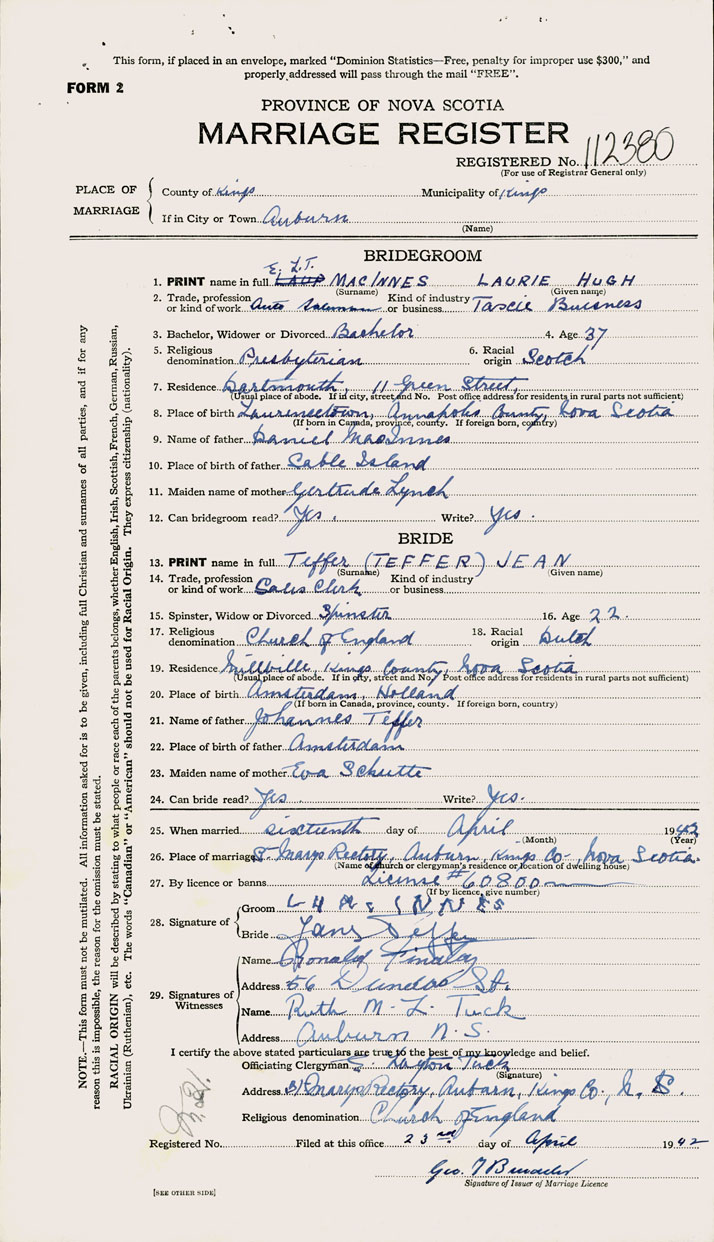 This form, if placed in an envelope, marked “Dominion Statistics—Free, penalty for improper use $300,” and
properly addressed will pass through the mail “FREE”.
FORM 2
PROVINCE OF NOVA SCOTIA
MARRIAGE REGISTER
REGISTERED No. 112380
(For use of Registrar General only)
PLACE OF MARRIAGE
County of Kings Municipality of Kings
If in City or Town Auburn
(Name)
BRIDEGROOM
E. L.T.
1. PRINT name in full MACINNES LAURIE HUGH
(Surname) (Given name)
2. Trade, profession or kind of work Auto Salesman Kind of industry or business Buisness
3. Bachelor, Widower or Divorced Bachelor 4. Age 37
5. Religious denomination Presbyterian 6. Racial origin Scotch
7. Residence Dartmouth, 11 Green Street,
(Usual place of abode. If in city, street and No. Post office address for residents in rural parts not sufficient)
8. Place of birth Laurencetown, Annapolis County, Nova Scotia
(If born in Canada, province, county. If foreign born, country)
9. Name of father Daniel MacInnes
10. Place of birth of father Sable Island
11. Maiden name of mother Gertrude Lynch
12. Can bridegroom read? Yes. Write? Yes.
BRIDE
13. PRINT name in full Teffer (TEFFER) JEAN
(Surname) (Given name)
14. Trade, profession or kind of work Sales Clerk Kind of industry or business
15. Spinster, Widow or Divorced Spinster 16. Age 22.
17. Religious denomination Church of England 18. Racial origin Dutch
19. Residence Millville, Kings County, Nova Scotia
(Usual place of abode. If in city, street and No. Post office address for residents in rural parts not sufficient)
20. Place of birth Amsterdam, Holland
(If born in Canada, province, county. If foreign born, country)
21. Name of father Johannes Teffer
22. Place of birth of father Amsterdam
23. Maiden name of mother Eva Schutte
24. Can bride read? Yes. Write? Yes.
25. When married sixteenth day of April 1942
(Month) (Year)
26. Place of marriage St Marys Rectory, Auburn, Kings Co. Nova Scotia.
(Name of church or clergyman's residence or location of dwelling house)
27. By licence or banns License #60800
(If by licence, give number)
28. Signature of
Groom L H Mc INNES
Bride Teffer
29. Signatures of Witnesses
Name Ronald Findlay
Address 56 Dundas St.
Name Ruth M. L. Tuck
Address Auburn N.S.
I certify the above stated particulars are true to the best of my knowledge and belief.
Officiating Clergyman Layton Tuck
(Signature)
Address St Marys Rectory, Auburn, Kings Co., N. S.
Religious denomination Church of England
Registered No. Filed at this office 23rd day of April 1942
Geo.
Signature of Issuer of Marriage Licence
[SEE OTHER SIDE]
NOTE.—This form must not be mutilated. All information asked for is to be given, including full Christian and surnames of all parties, and if for any
reason this is impossible, the reason for the omission must be stated.
RACIAL ORIGIN will be described by stating to what people or race each of the parents belongs, whether English, Irish, Scottish, French, German, Russian,
Ukrainian (Ruthenian), etc. The words “Canadian” or “American” should not be used for Racial Origin. They express citizenship (nationality).